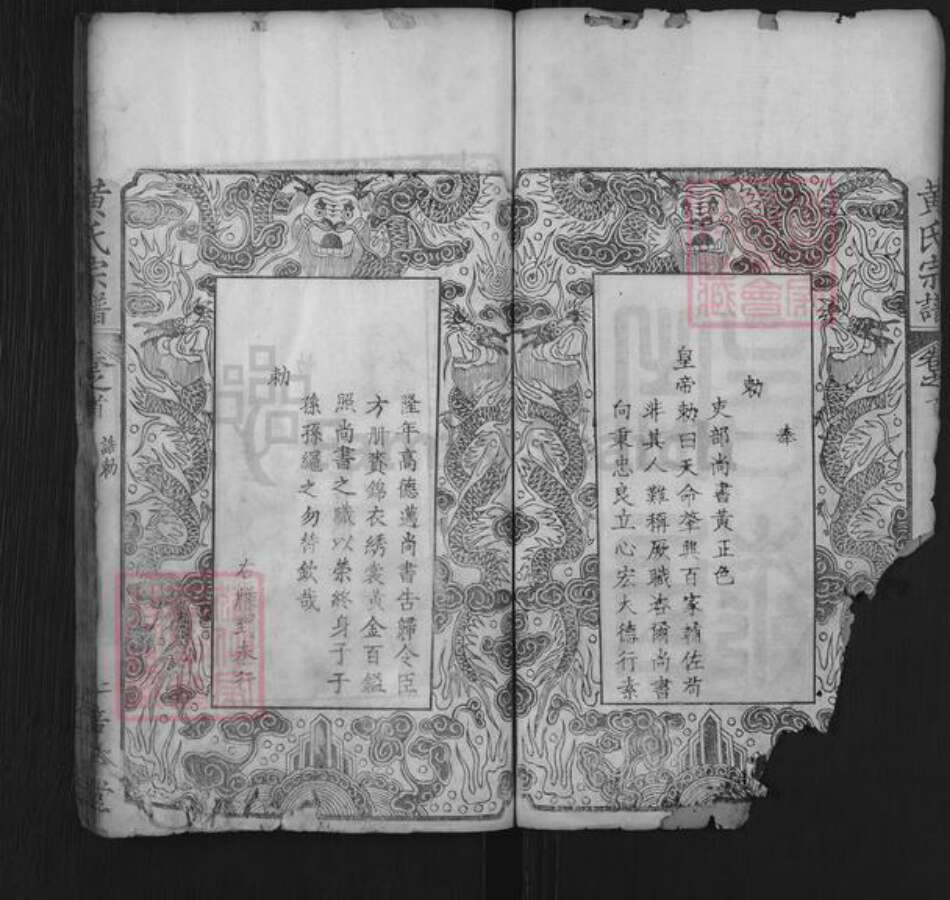 黃氏宗譜
卷之首
奉
勅
吏部尚書黃正色
皇帝勅曰天命肇興百家輔佐苟
非其人難稱厥職咨爾尚書
向秉忠良立心宏大德行素
隆年高德邁尚書告歸今臣
方册賚錦衣綉裳黃金百鎰
照尚書之職以榮終身子子
孫孫繩之勿替欽哉
勅
黃氏宗譜
卷之首
誥勅